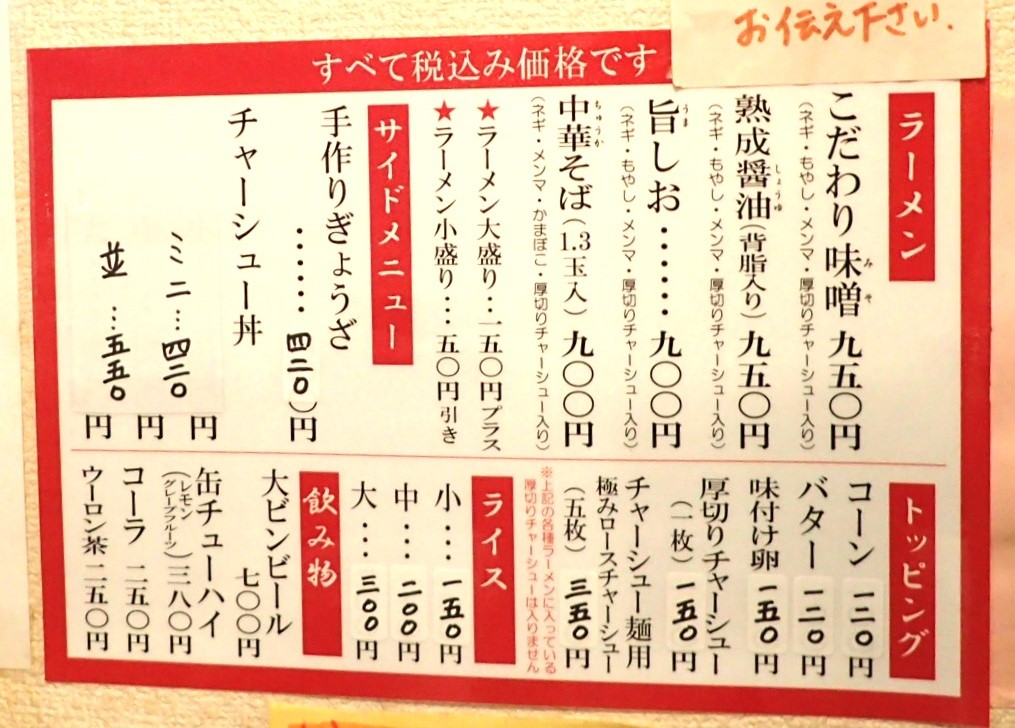 お伝え下さい.
すべて税込み価格です
ラーメン
こだわり味噌 九五〇円
(ネギ・もやし・メンマ・厚切りチャーシュー入り)
熟成醤油(背脂入り) 九五〇円
(ネギ・もやし・メンマ・厚切りチャーシュー入り)
旨しお・・・・・・九〇〇円
(ネギ・もやし・メンマ・厚切りチャーシュー入り)
中華そば(1.3玉入) 九〇〇円
(ネギ・メンマ・かまぼこ・厚切りチャーシュー入り)
★ラーメン大盛り・・・一五〇円プラス
★ラーメン小盛り・・・五〇円引き
サイドメニュー
手作りぎょうざ
・・・・・・四二〇円
チャーシュー丼
ミニ…四二〇円
並…五五〇円
円
トッピング
コーン 一二〇円
バター 一二〇円
味付け卵 一五〇円
厚切りチャーシュー
(一枚) 一五〇円
チャーシュー麺用
極みロースチャーシュー
(五枚) 三五〇円
※上記の各種ラーメンに入っている
厚切りチャーシューは入りません
ライス
小・・・一五〇円
中・・・二〇〇円
大・・・三〇〇円
飲み物
大ビンビール
七〇〇円
缶チューハイ
(レモン
グレープフルーツ) 三八〇円
コーラ 二五〇円
ウーロン茶 二五〇円